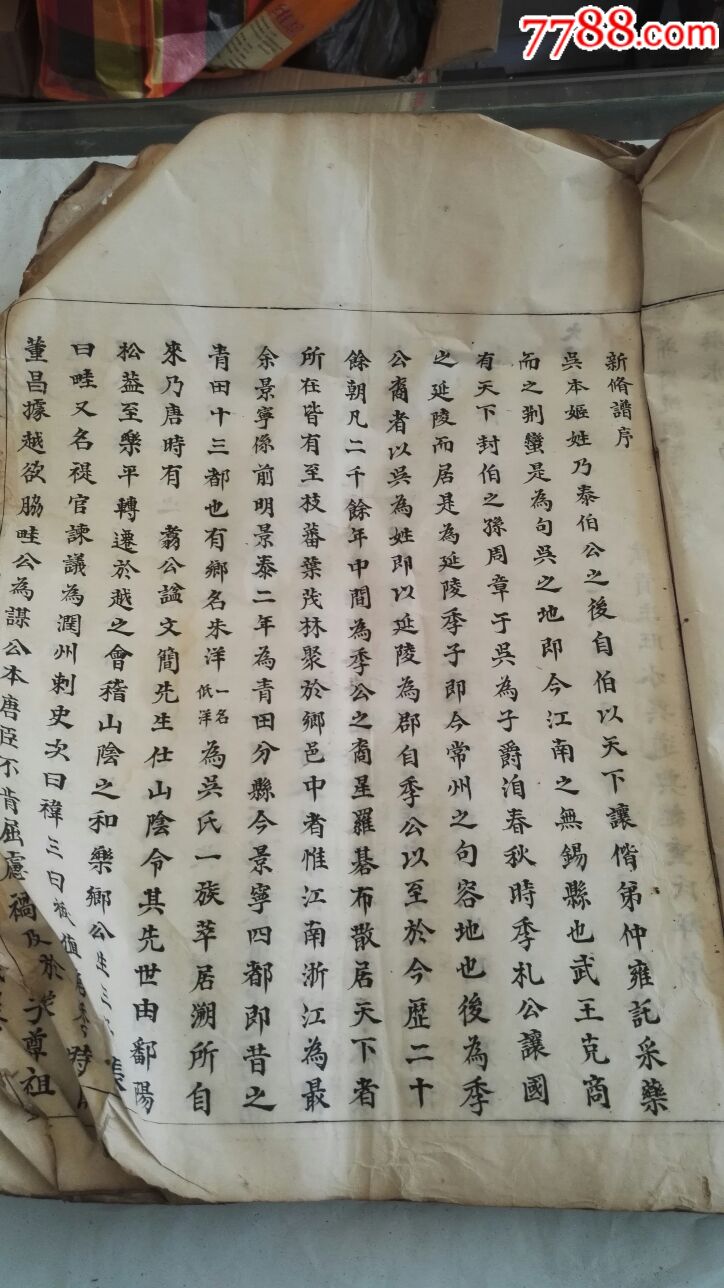 7788.com
新脩譜序
吳本姬姓乃泰伯公之後自伯以天下讓偕弟仲雍託采藥
而之荆蠻是為句吳之地即今江南之無錫縣也武王克商
有天下封伯之孫周章于吳為子爵洎春秋時季札公讓國
之延陵而居是為延陵季子即今常州之句容地也後為季
公裔者以吳為姓即以延陵為郡自季公以至於今歷二十
餘朝凡二千餘年中間為季公之裔星羅碁布散居天下者
所在皆有至枝蕃葉茂林聚於鄉邑中者惟江南浙江為最
余景寧係前明景泰二年為青田分縣今景寧四都即昔之
青田十三都也有鄉名朱洋一名伭洋為吳氏一族萃居溯所自
來乃唐時有翥公諡文簡先生仕山陰令其先世由鄱陽
松蓝至樂平轉遷於越之會稽山陰之和樂鄉公生三子長
曰畦又名禔官諫議為潤州刺史次曰禕三曰祴值唐季時
董昌據越欲脇畦公為謀公本唐臣不肯屈慮禍及於
尊祖